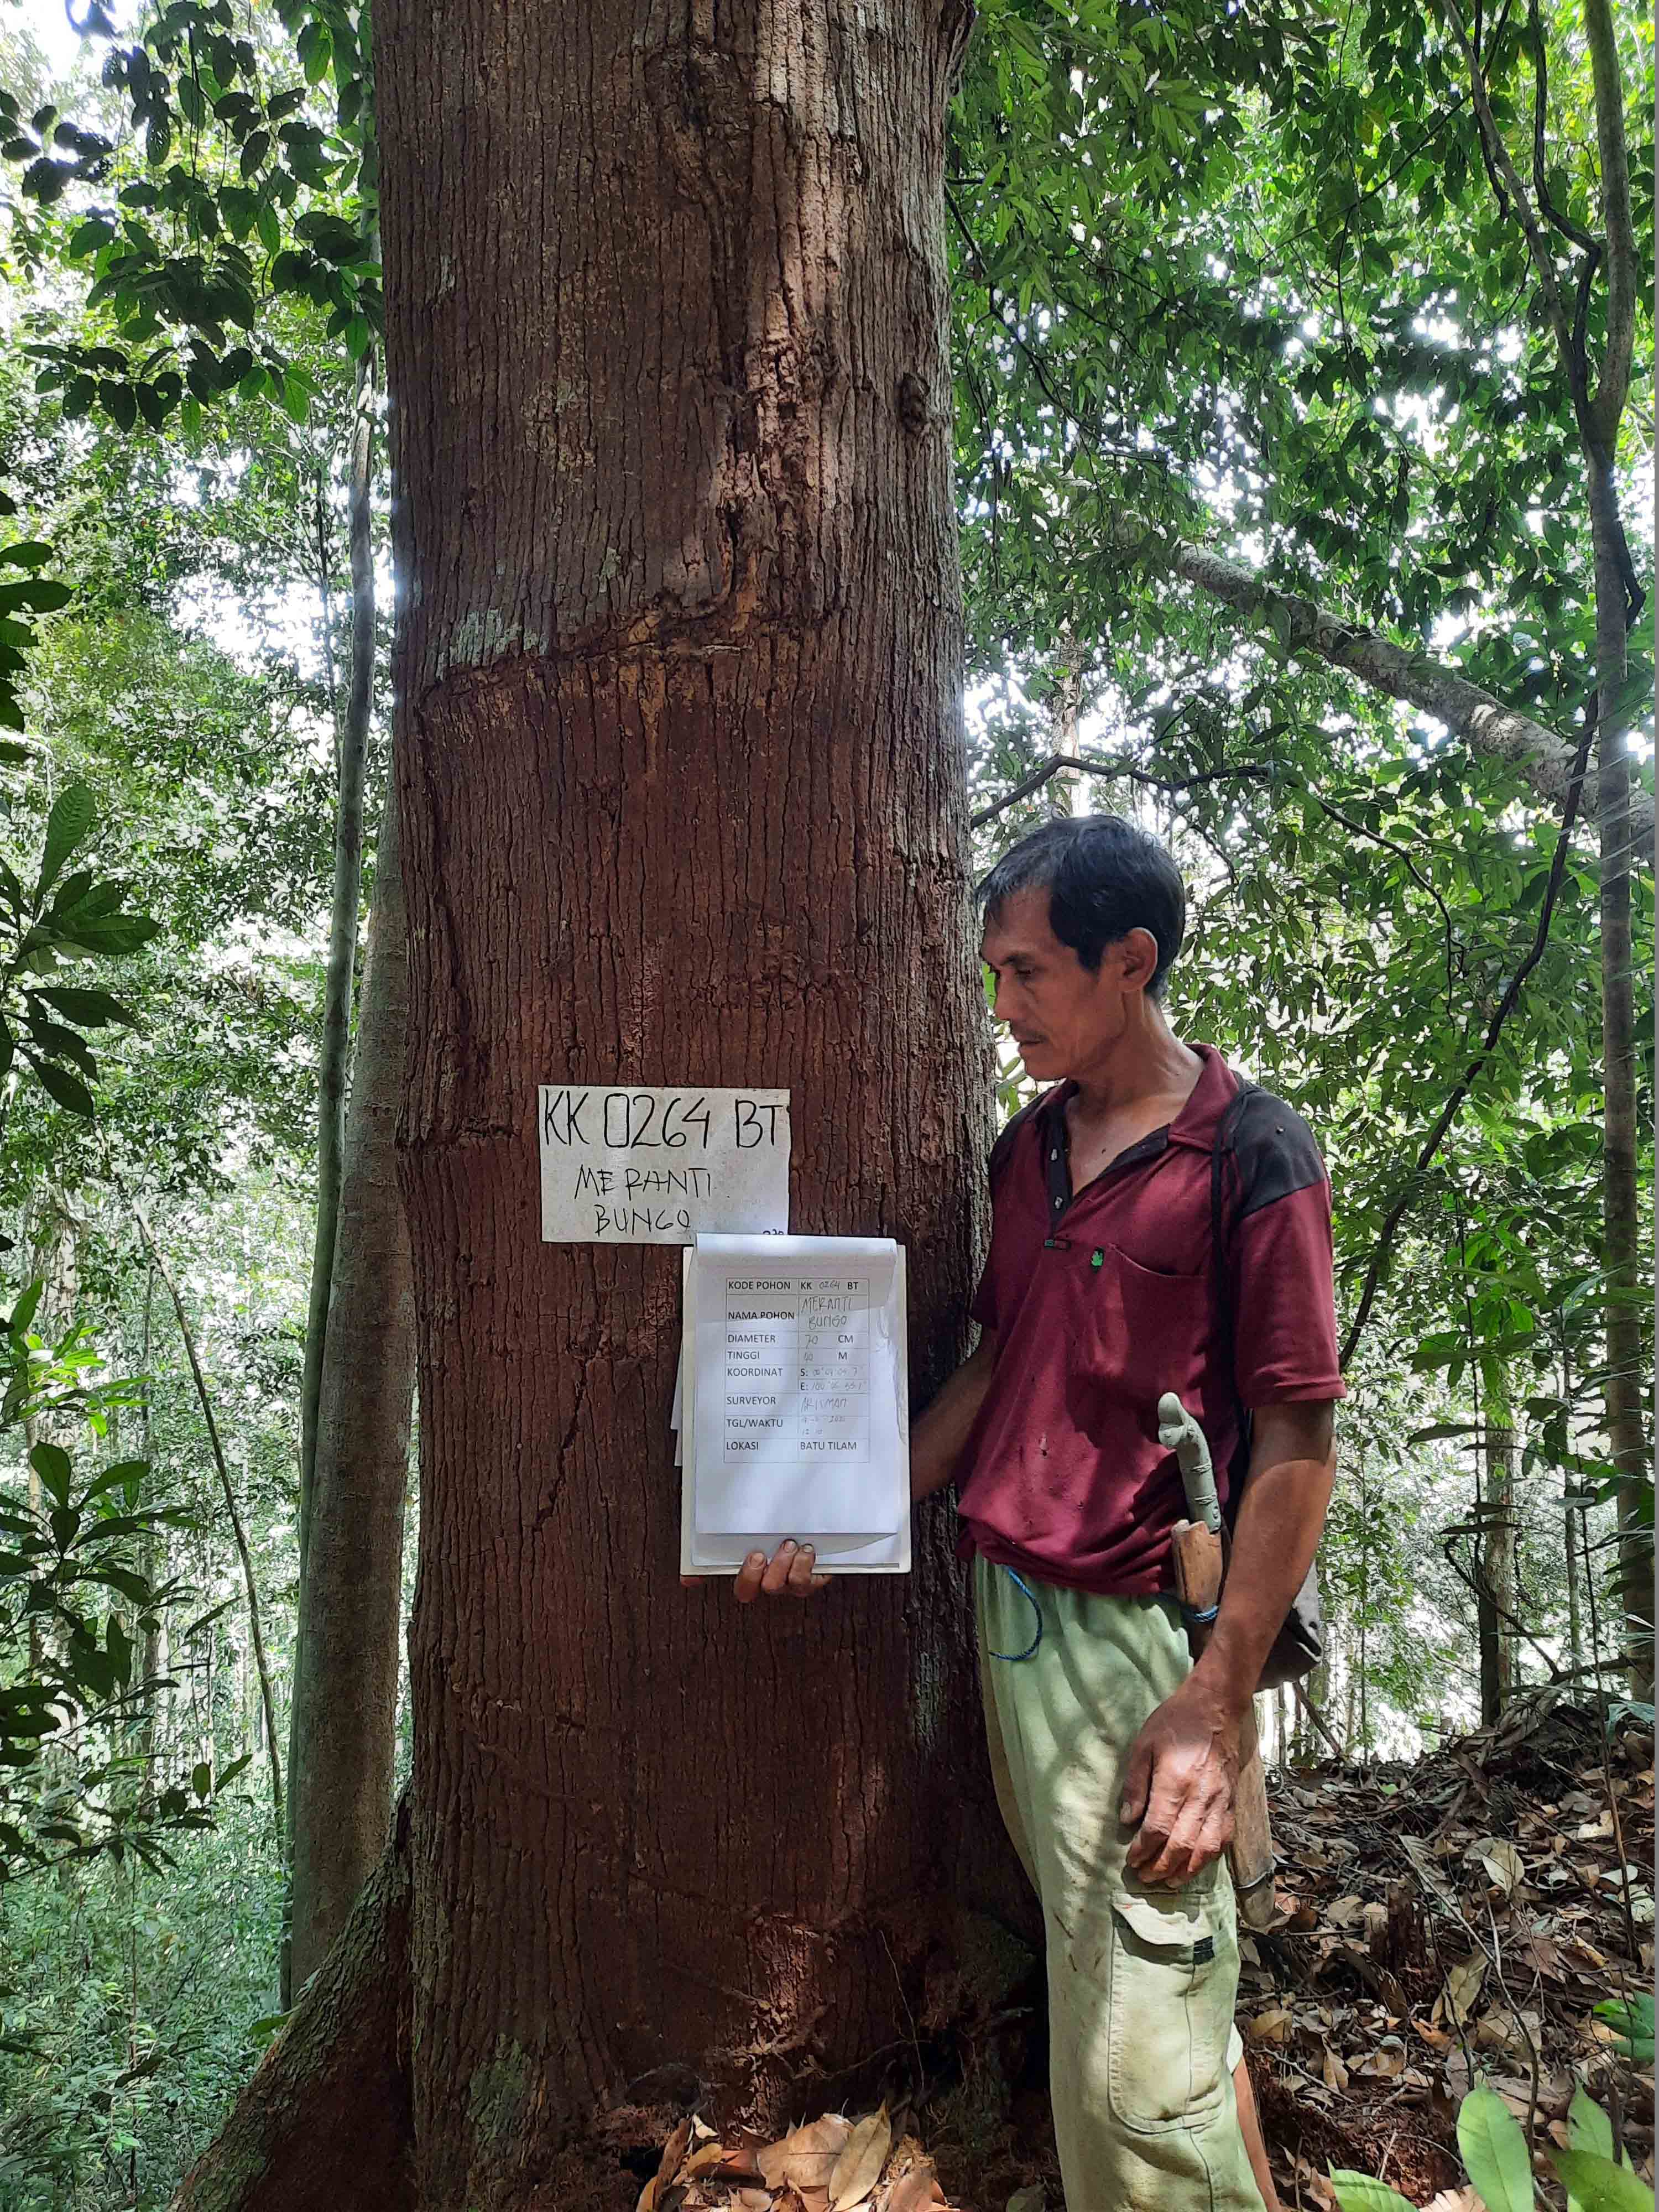 KK 0264 BT
MERANTI
BUNGO
KODE POHON KK 0264 BT
NAMA POHON MERANTI BUNGO
DIAMETER 70 CM
TINGGI M
KOORDINAT S:
E:
SURVEYOR ARISMAN
TGL/WAKTU
LOKASI BATU TILAM